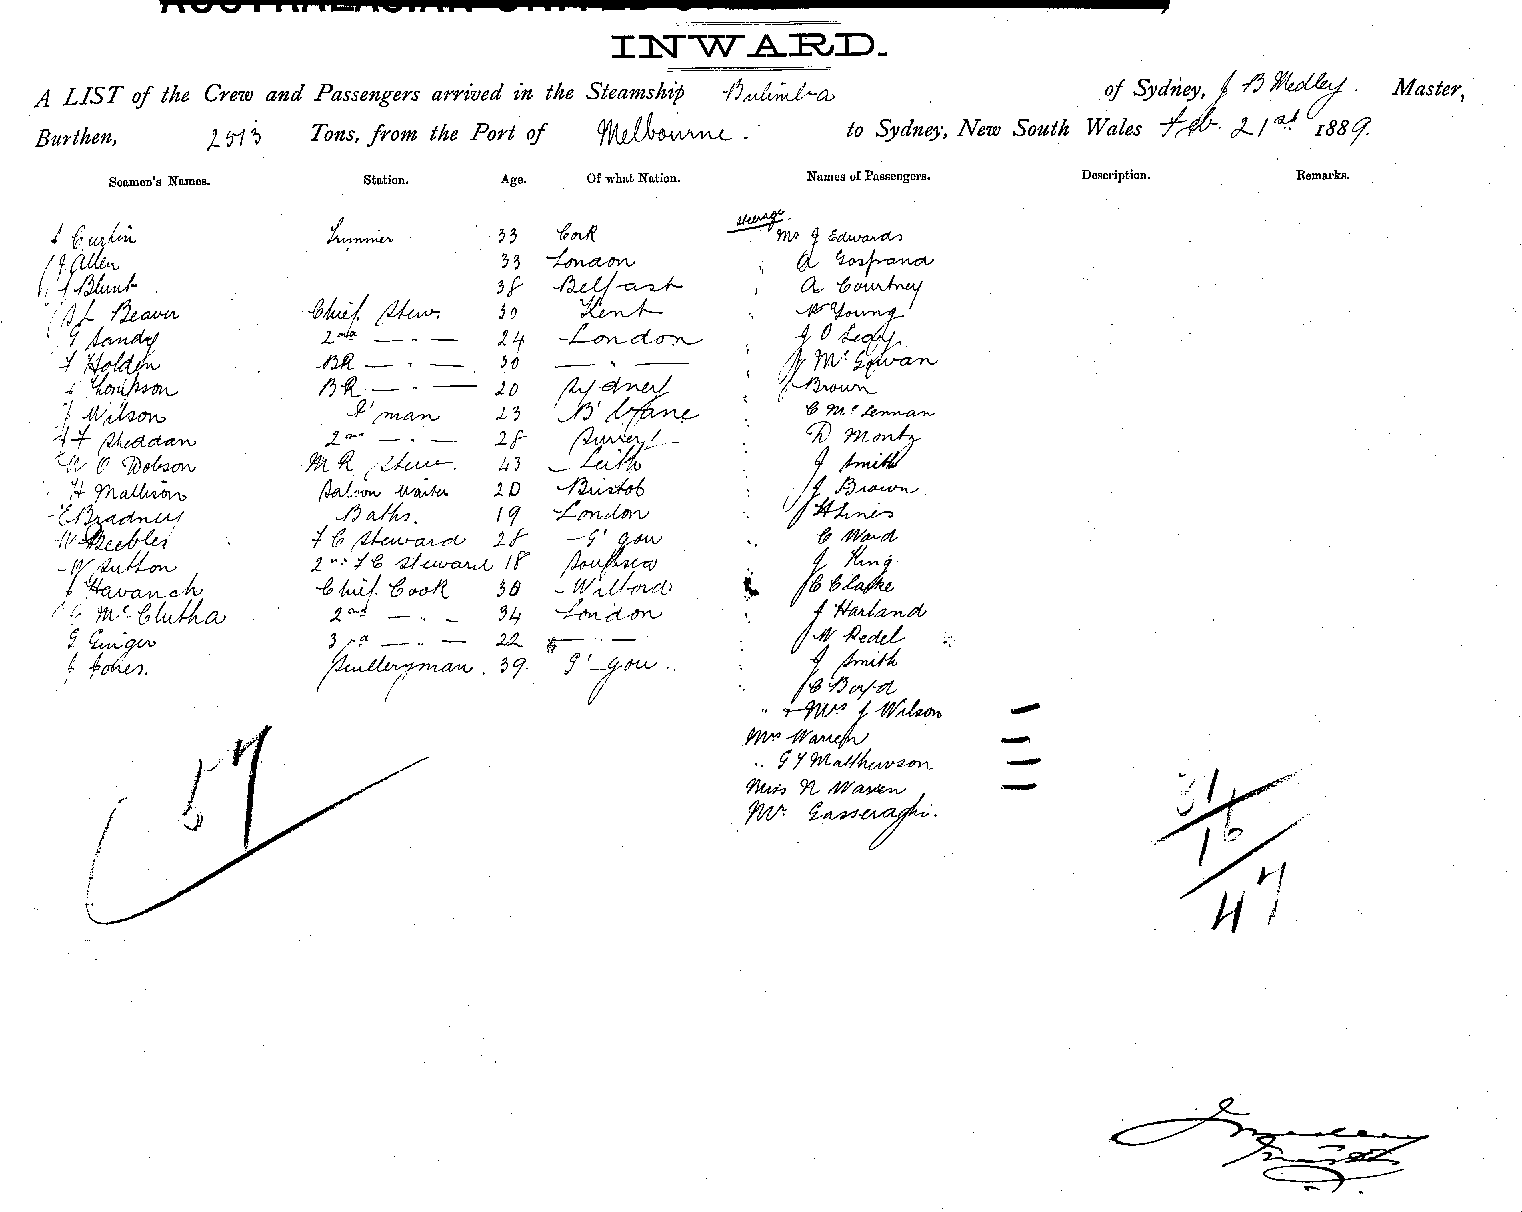 INWARD.
A LIST of the Crew and Passengers arrived in the Steamship Bulimba of Sydney, J B Medley. Master,
Burthen, 2513 Tons, from the Port of Melbourne. to Sydney, New South Wales Feb. 21st 1889.
Seamen's Names. Station. Age. Of what Nation. Names of Passengers. Description. Remarks.
Steerage
Curtin Trimmer 33 Cork Mr J Edwards
J Allen 33 London A
Blunt 38 Belfast A Courtney
Beaver Chief Stew. 30 Kent Young
G Sandy 2nd — " — 24 London J O Leary
Holden BR — " — 30 — " — J McGowan
Thompson BR — " — 20 Sydney J Brown
J Wilson P'man 23 B'bane C McLennan
Sheddan 2nd — " — 28 Surrey D Monty
W O Dobson M R Stew. 43 Leith J Smith
H Mallison Saloon Waiter 20 Bristol J Brown
E Bradney Baths. 19 London H Lines
W Beebles F C Steward 28 G'gou C Ward
W Sutton 2nd F C Steward 18 J King
Havanah Chief Cook 30 Wilford C Clarke
McClutha 2nd — " — 34 London J Harland
G Ginger 3rd — " — 22 — " — W Redel
J Jones. Sculleryman. 39. G'gou .. J Smith
C Boyd
" + Mrs J Wilson —
Mrs Warren —
" G Y Matthewson —
Miss N Warren —
Mr Gasseraghi.
57
31
16
47